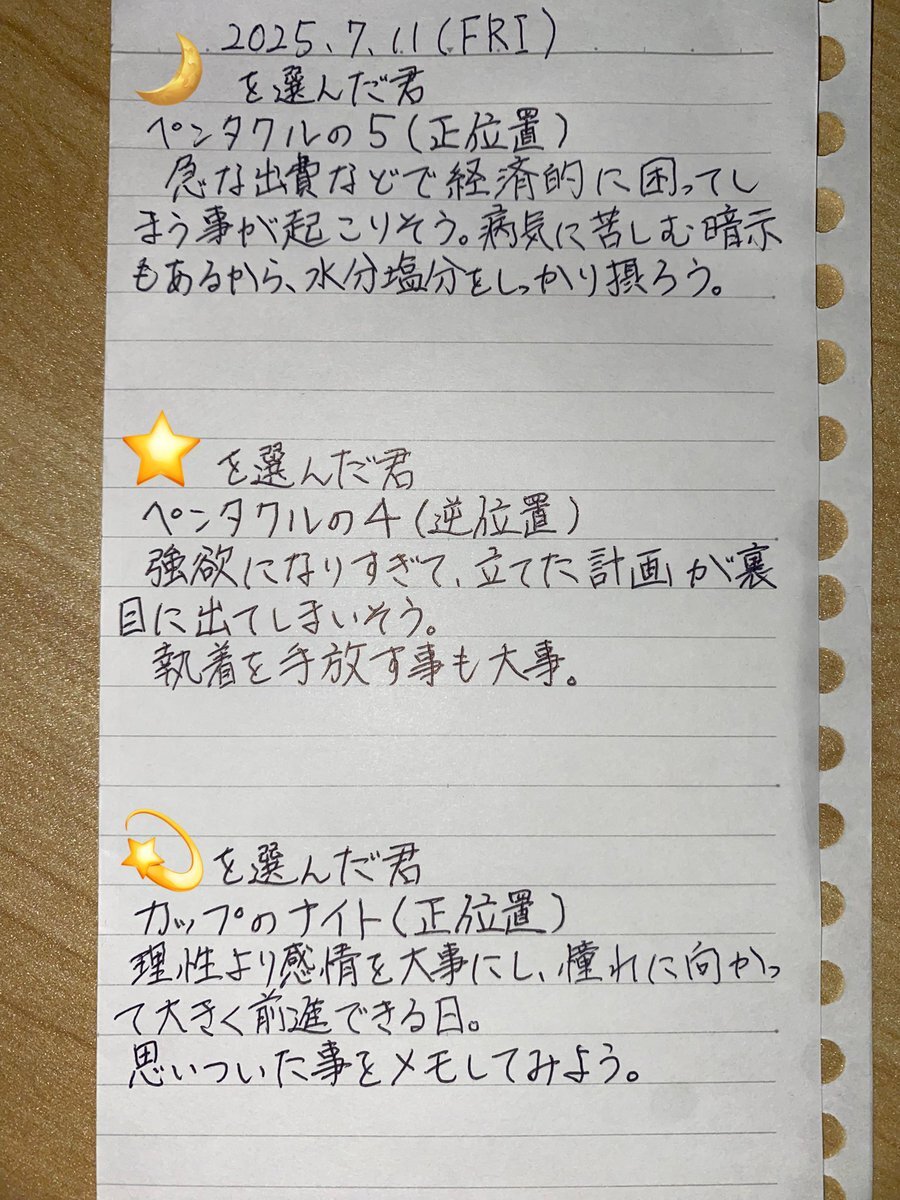 2025.7.11(FRI)
🌙を選んだ君
ペンタクルの5(正位置)
急な出費などで経済的に困ってし
まう事が起こりそう。病気に苦しむ暗示
もあるから、水分塩分をしっかり摂ろう。
⭐を選んだ君
ペンタクルの4(逆位置)
強欲になりすぎて、立てた計画が裏
目に出てしまいそう。
執着を手放す事も大事。
💫を選んだ君
カップのナイト(正位置)
理性より感情を大事にし、憧れに向かっ
て大きく前進できる日。
思いついた事をメモしてみよう。